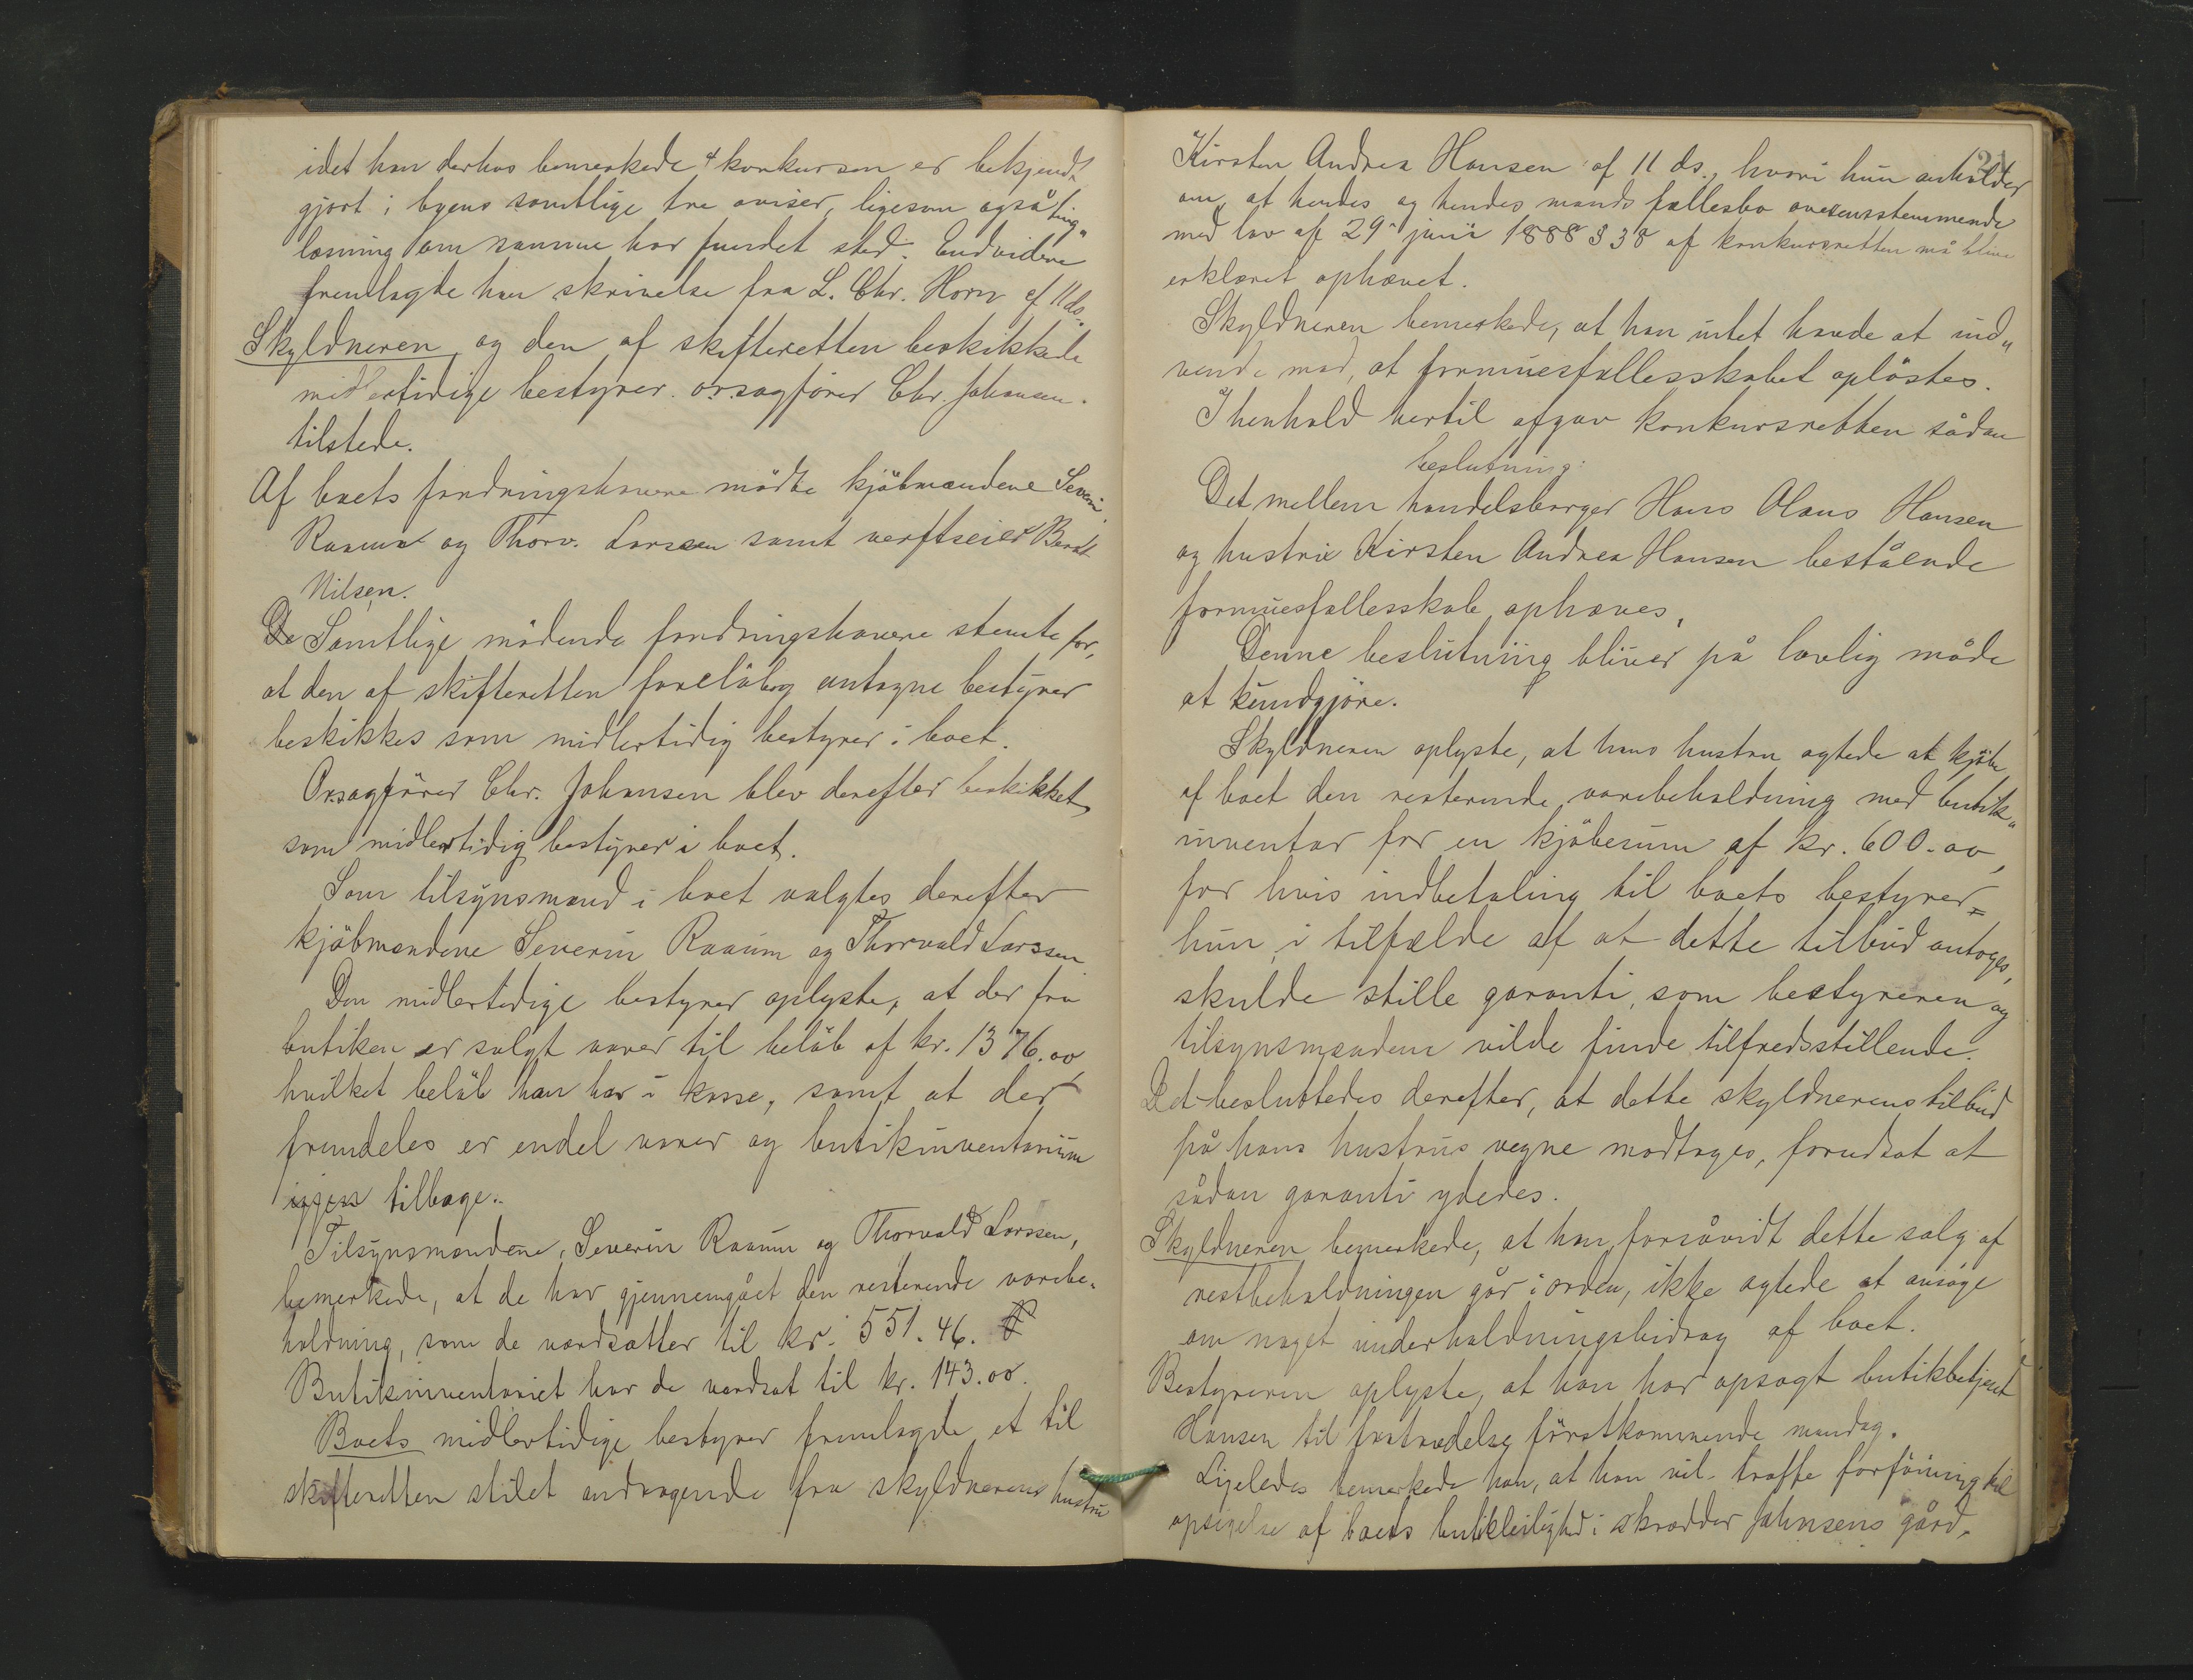 idet han derhos bemerkede at konkursen er bekjendt-
gjort i byens samtlige tre aviser, ligesom også ting-
læsning om samme har fundet sted. Endvidere
fremlagde han skrivelse fra L. Chr. Horn af 11 ds.
Skyldneren og den af skifteretten beskikkede
midlertidige bestyrer o.r.sagfører Chr. Johansen
tilstede.
Af boets fordringshavere mødte kjøbmændene Severin
Raaum og Thorv. Larssen samt verftseier Bernt
Nilsen.
De Samtlige mødende fordringshavere stemte for,
at den af skifteretten foreløbig antagne bestyrer
beskikkes som midlertidig bestyrer i boet.
Orsagfører Chr. Johansen blev derefter beskikket
som midlertidig bestyrer i boet.
Som tilsynsmænd i boet valgtes derefter
kjøbmændene Severin Raaum og Thorvald Larssen
Den midlertidige bestyrer oplyste, at der fra
butiken er solgt varer til beløb af kr. 1376.00
hvilket beløb han har i kasse, samt at der
fremdeles er endel varer og butikinventarium
igjen tilbage.
Tilsynsmændene, Severin Raaum og Thorvald Larssen,
bemerkede, at de har gjennemgået den resterende varebe-
holdning, som de værdsætter til kr. 551.46.
Butikinventariet har de værdsat til kr. 143.00.
Boets midlertidige bestyrer fremlagde et til
skifteretten stilet andragende fra skyldnerens hustru
Kirsten Andrea Hansen af 11 ds., hvori hun anholder
om, at hendes og hendes mands fællesbo overensstemmende
med lov af 29 juni 1888 § 38 af konkursretten må blive
erklæret ophævet.
Skyldneren bemerkede, at han intet havde at ind-
vende mod, at formuesfællesskabet opløstes.
I henhold hertil afgav konkursretten sådan
beslutning:
Det mellem handelsborger Hans Olaus Hansen
og hustru Kirsten Andrea Hansen bestående
formuesfællesskab ophæves,
Denne beslutning bliver på lovlig måde
at kundgjøre.
Skyldneren oplyste, at hans hustru agtede at kjøbe
af boet den resterende varebeholdning med butik-
inventar for en kjøbesum af kr. 600.00,
for hvis indbetaling til boets bestyrer
hun, i tilfælde af at dette tilbud antoges,
skulde stille garanti, som bestyreren og
tilsynsmændene vilde finde tilfredsstillende.
Det besluttedes derefter, at dette skyldnerens tilbud
på hans hustrus vegne modtages, forudsat at
sådan garanti ydedes.
Skyldneren bemerkede, at han, forsåvidt dette salg af
restbeholdningen går i orden, ikke agtede at ansøge
om noget underholdningsbidrag af boet.
Bestyreren oplyste, at han har opsagt butikbetjent
Hansen til fratrædelse førstkommende mandag.
Ligeledes bemerkede han, at han vil træffe forføining til
opsigelse af boets butikleilighed i skrædder Johnsens gård.